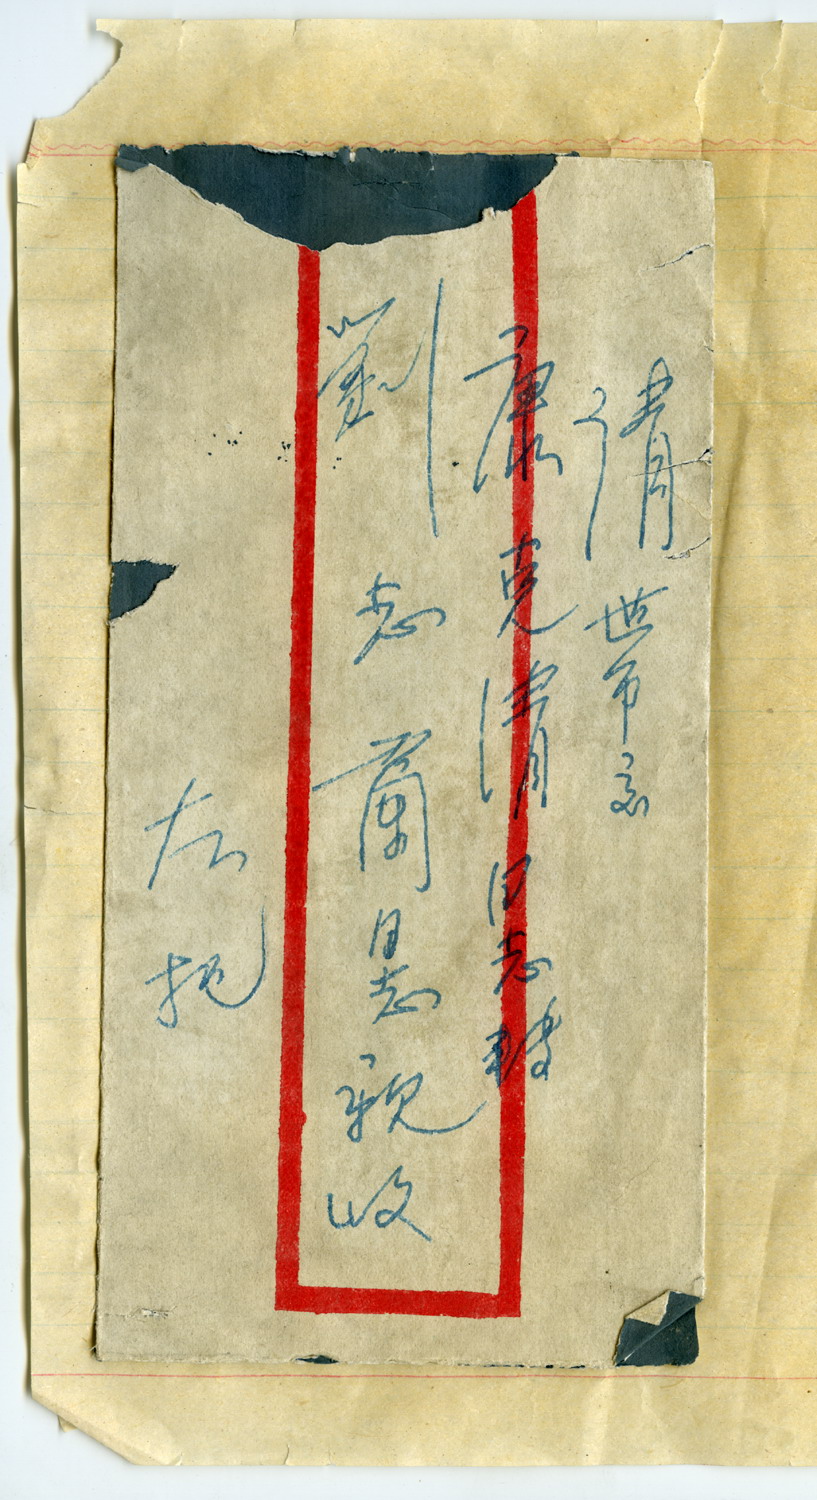 請世
康克清同志轉
劉志蘭同志親收
左